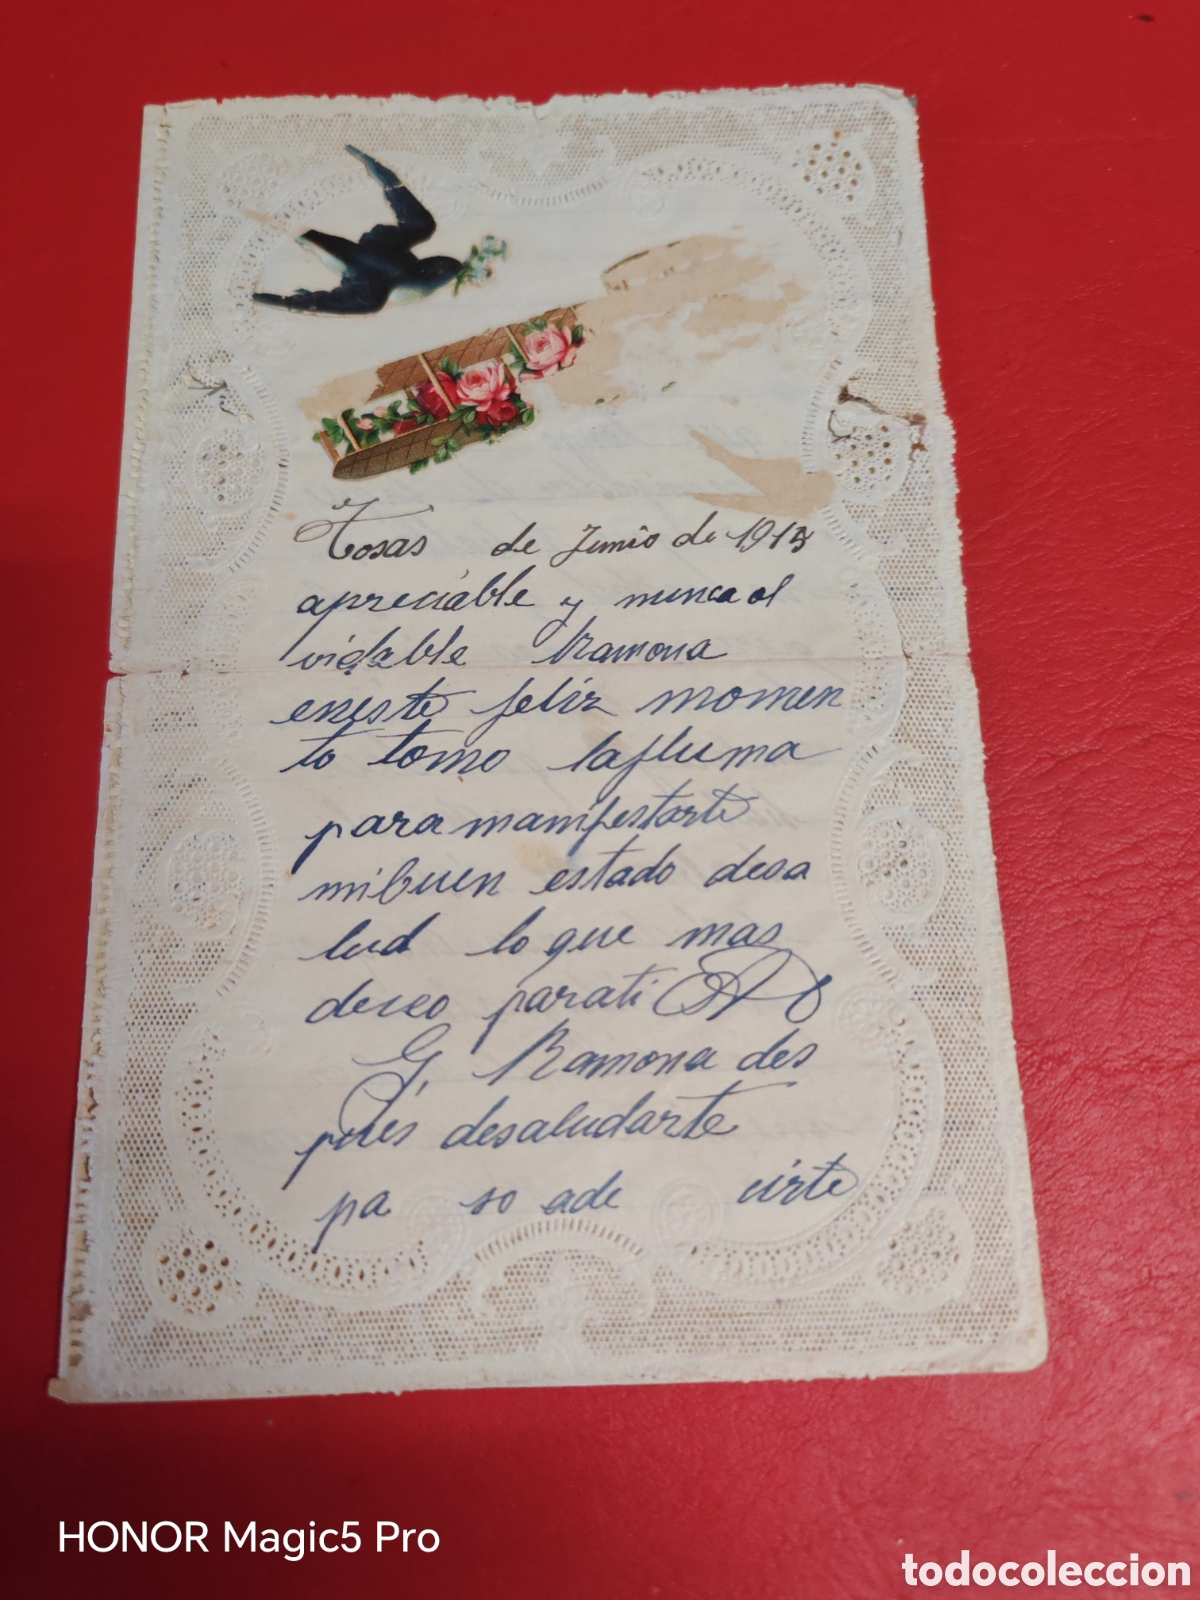 Tosas de Junio de 1913
apreciable y nunca ol
vidable Ramona
eneste feliz momen
to tomo lapluma
para manifestarte
mibuen estado desa
lud lo que mas
deceo parati
G, Ramona des
pues desaludarte
pa so ade cirte
HONOR Magic5 Pro
todocoleccion